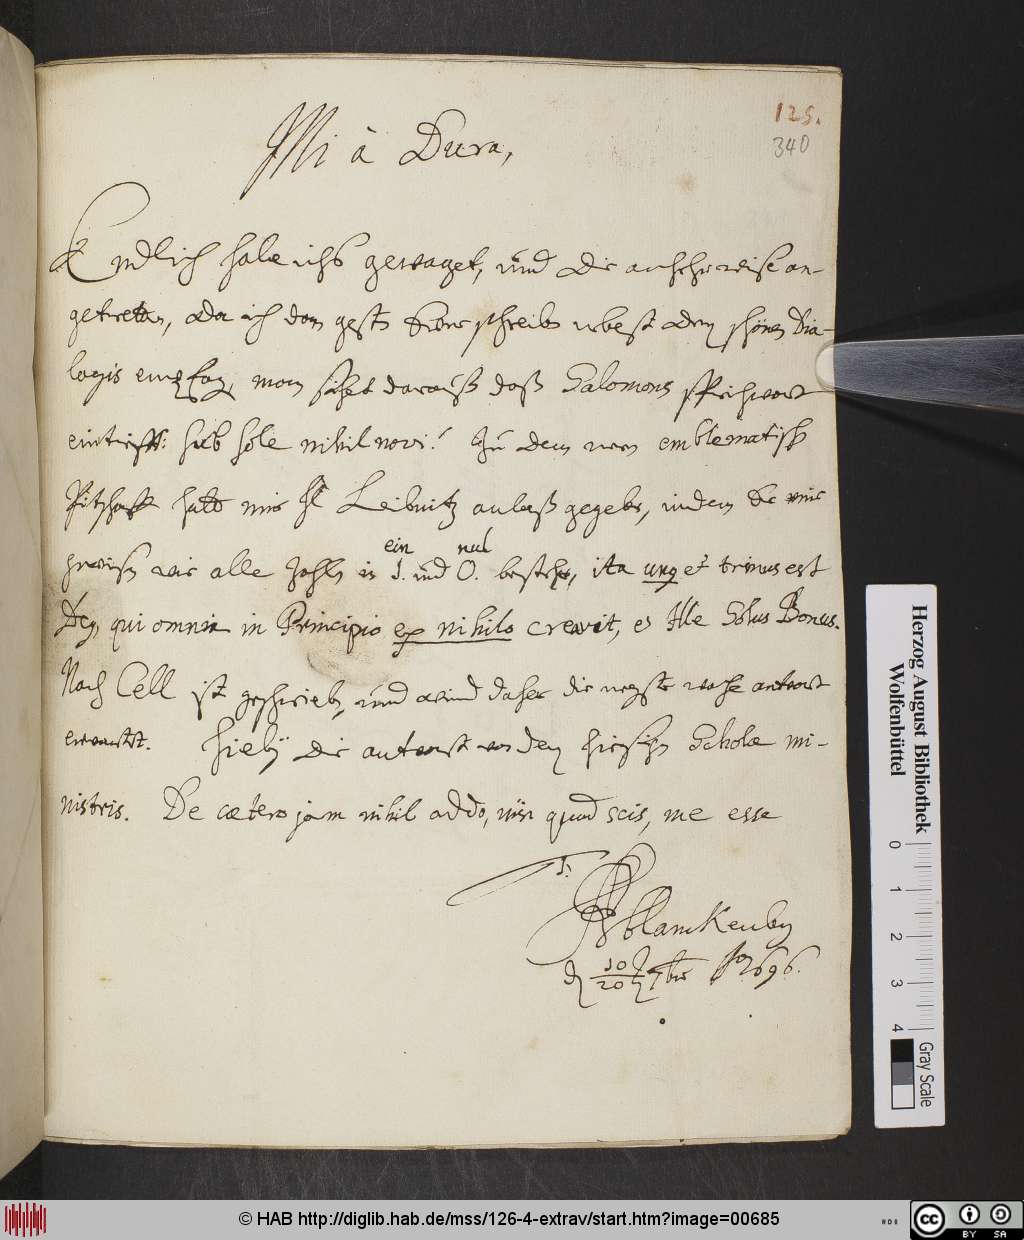 125.
340
Mi à Dura,
Endlich habe ichs gewaget, und die anhero reise an-
getretten, da ich den schreiben nebst dem schönen Dia-
logis man sihet darauß daß Salomons sprichwort
eintrifft: sub sole nihil novi! Zu dem emblematisch
Pitschafft hatt mir H Leibnitz anlaß gegeben, indem Er mir
gewiesen wie alle Zahlen in ein 1. und nul 0. bestehen, ita unq et trinus est
Deq, qui omnia in Principio ex nihilo creavit, es Ille Solus Bonus.
Nach Cell ist geschrieben, und wird daher die negste woche antwort
erwartet. Hiebÿ die antwort von den hiesigen Scholæ mi-
nistris. De cætero jam nihil addo, nisi quod scis, me esse
T.
Blanckenburg
d 10/20 7br 1696.
Herzog August Bibliothek
Wolfenbüttel
0 1 2 3 4
Gray Scale
© HAB http://diglib.hab.de/mss/126-4-extrav/start.htm?image=00685
cc BY SA